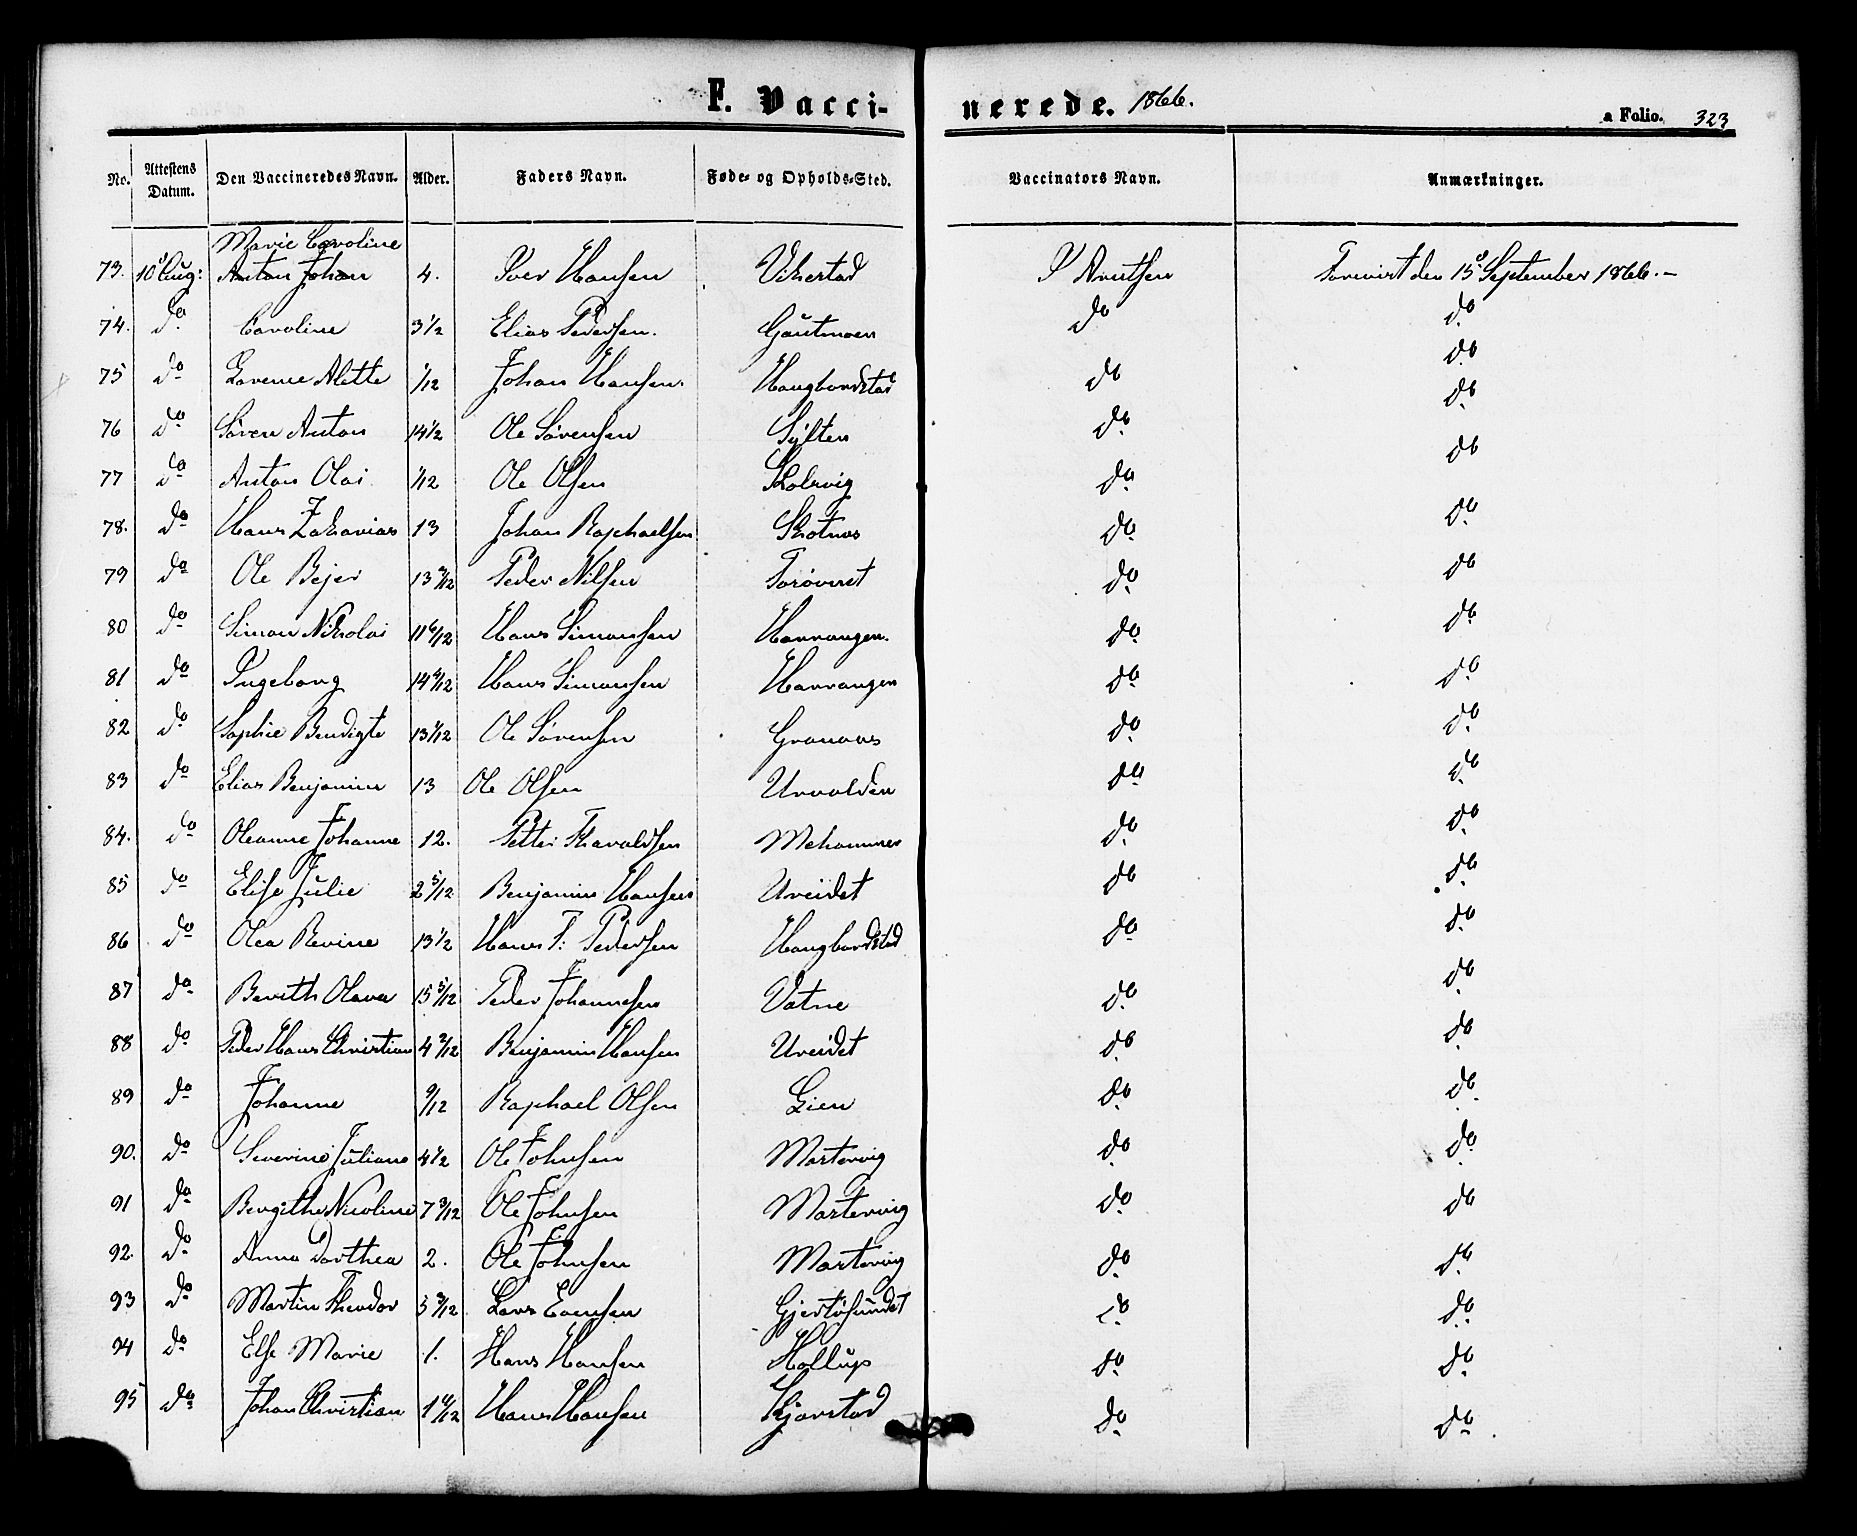 F. Vacci- nerede. 1866.
a Folio. 323
No. Attestens Datum. Den Vaccineredes Navn. Alder. Faders Navn. Føde- og Opholds-Sted. Vaccinators Navn. Anmærkninger.
Marie Caroline
73. 10 Aug: Anton Johan 4. Iver Hansen Vikestad I Arntsen den 15de September 1866. –
74. do Caroline 3½ Elias Pedersen. Gautmoen do do
75 do Lovene Alette 1/12 Johan Hansen. Haugbordstad do do
76 do Sören Anton 14½ Ole Sörensen Sylten do do
77 do Anton Olai 1/12 Ole Olsen Kolvig do do
78. do Hans Zakarias 13 Johan Raphaelsen Skotnes do do
79 do Ole Bejer 13 Peder Nilsen do do
80 do Simon Nikolai 11 6/12 Hans Simonsen Harvangen. do do
81 do Ingeborg 14 Hans Simonsen Harvangen do do
82 do Sophie Bendigte 13 1/12 Ole Sörensen Granaas do do
83 do Elias Benjamin 13 Ole Olsen Urvolden do do
84. do Oleanne Johanne 12. Petter Haraldsen Mehammer do do
85 do Elise Julie 2 5/12 Benjamin Hansen Ureidet do do
86 do Olea Revine 13½ Hans P: Pedersen Haugbordstad do do
87 do Berith Olava 15 5/12 Peder Johannesen Vatne do do
88 do Peder Hans Christian 4 2/12 Benjamin Hansen Ureidet do do
89 do Johanne 9/12 Raphael Olsen Lien do do
90. do Severine Juliane 4½ Ole Johnsen Martervig do do
91 do Bergithe Nicoline 7 3/12 Ole Johnsen Martervig do do
92. do Anna Dorthea 2. Ole Johnsen Martervig do do
93 do Martin Theodor 5 3/12 Lars Evensen Gjertösundet do do
94 do Else Marie 1. Hans Hansen Hollup do do
95 do Johan Christian 1 Hans Hansen Kjørstad do do